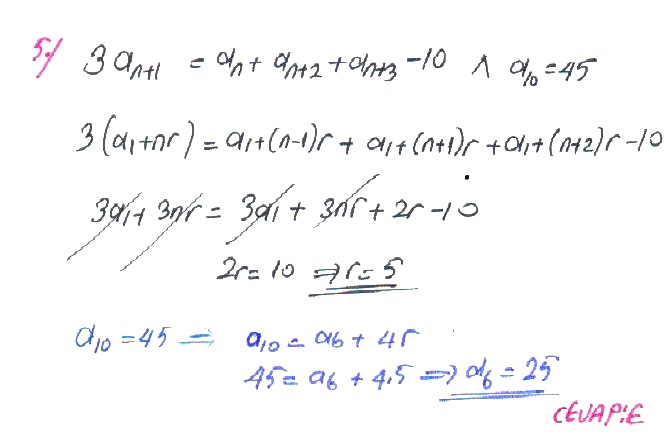 5-) 3aₙ₊₁ = aₙ + aₙ₊₂ + aₙ₊₃ - 10 ∧ a₁₀ = 45
3(a₁+nr) = a₁+(n-1)r + a₁+(n+1)r + a₁+(n+2)r - 10
3a₁ + 3nr = 3a₁ + 3nr + 2r - 10
2r = 10 ⇒ r = 5
a₁₀ = 45 ⇒ a₁₀ = a₆ + 4r
45 = a₆ + 4.5 ⇒ a₆ = 25
CEVAP: E